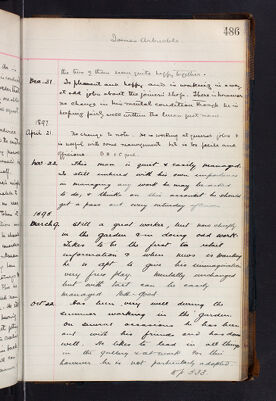 486
James Arbuckle.
the two of them seem quite happy together.
Dec. 31. Is pleasant and happy and is working in a way
at odd jobs about the joiners' shop. There is however
no change in his mental condition though he is
keeping fairly well within the linear just now.
1897
April 21. No change to note. He is working at general jobs &
is useful with some management but is so facile and
officious.
Nov. 22. This man is quiet & easily managed.
Is still imbued with his own importance
in managing any work he may be asked
to do, & thinks on that account he should
get a pass out every Saturday afternoon.
1898.
March 9. Still a great worker, but now chiefly
in the garden & in doing odd work.
Likes to be the first to retail
information & when news is wanting
he is apt to give his imagination
very free play. Mentally unchanged
but with tact can be easily
managed. B.H. Good.
Oct 22. Has been very well during the
summer working in the garden.
On several occasions he has been
out with his friends and has done
well. He likes to lead in all things
in the gallery & at work. For this
however he is not particularly adapted.
of 533